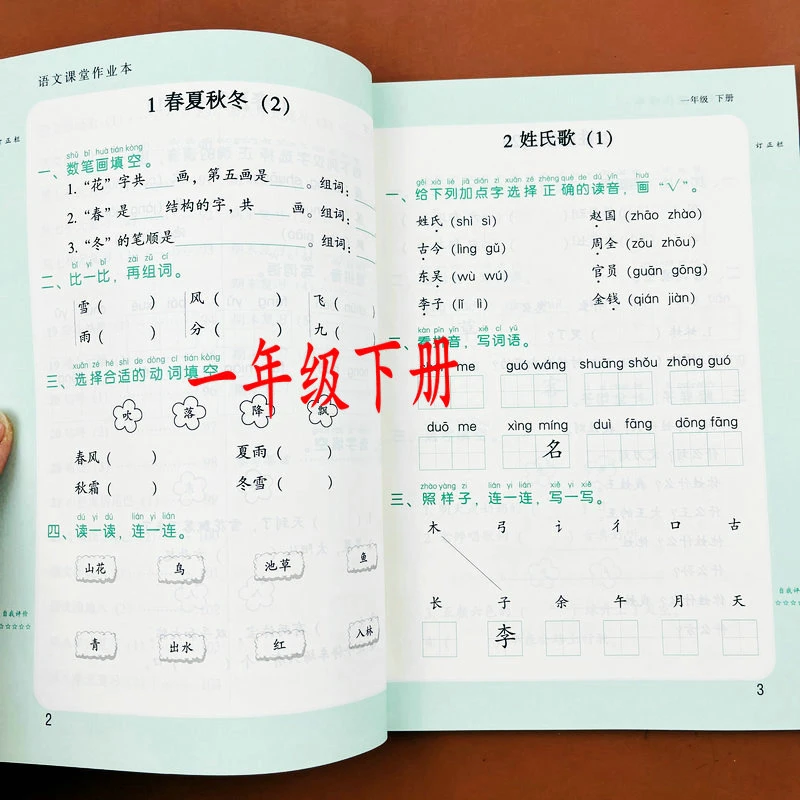 语文课堂作业本
订正栏
1 春夏秋冬（2）
shǔ bǐ huà tián kòng
一、数笔画填空。
1. “花”字共 画，第五画是 。组词：
2. “春”是 结构的字，共 画。组词：
3. “冬”的笔顺是 。组词：
bǐ yì bǐ zài zǔ cí
二、比一比，再组词。
雪（ ） 风（ ） 飞（ ）
雨（ ） 分（ ） 九（ ）
xuǎn zé hé shì de dòng cí tián kòng
三、选择合适的动词填空
吹 落 降 飘
春风（ ） 夏雨（ ）
秋霜（ ） 冬雪（ ）
dú yi dú lián yi lián
四、读一读，连一连。
山花 鸟 池草 鱼
青 出水 红 入林
自我评价
☆☆☆☆☆
2
一年级 下册
订正栏
2 姓氏歌（1）
gěi xià liè jiā diǎn zì xuǎn zé zhèng què de dú yīn huà
一、给下列加点字选择正确的读音，画“√”。
姓氏（shì sì） 赵国（zhāo zhào）
古今（lìng gǔ） 周全（zōu zhōu）
东吴（wù wú） 官员（guān gōng）
李子（lǐ lì） 金钱（qián jiàn）
kàn pīn yīn xiě cí yǔ
二、看拼音，写词语。
me guó wáng shuāng shǒu zhōng guó
duō me xìng míng duì fāng dōng fāng
名
zhào yàng zi lián yi lián xiě yi xiě
三、照样子，连一连，写一写。
木 弓 讠 彳 口 古
长 子 余 午 月 天
李
自我评价
☆☆☆☆☆
3
一年级下册